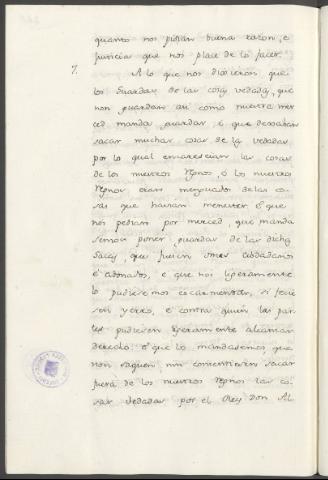 quanto nos pidían buena razon, e
justicia que nos place de lo facer.
7. A lo que nos dixieron que
los Guardas de las cosas vedadas, que
non guardan asi como nuestra mer
ced manda guardar, é que dexaban
sacar muchas cosas de las vedadas
por lo qual encarescian las cosas
de los nuestros Regnos, é los nuestros
Regnos eran menguados de las co-
sas que havian menester é que
nos pedian por merced, que manda
semos poner guardas de las dichas
Sacas, que fuesen omes cibdadanos
é abonados, e que nos ligeramente
lo pudiesemos escarmentar, si ficie
sen yerro, é contra quien las par
tes pudiesen ligeramente alcanzar
derecho: é que lo mandasemos, que
non saquen, nin consientiesen sacar
fuera de los nuestros Regnos las co-
sas vedadas por el Rey Don Al